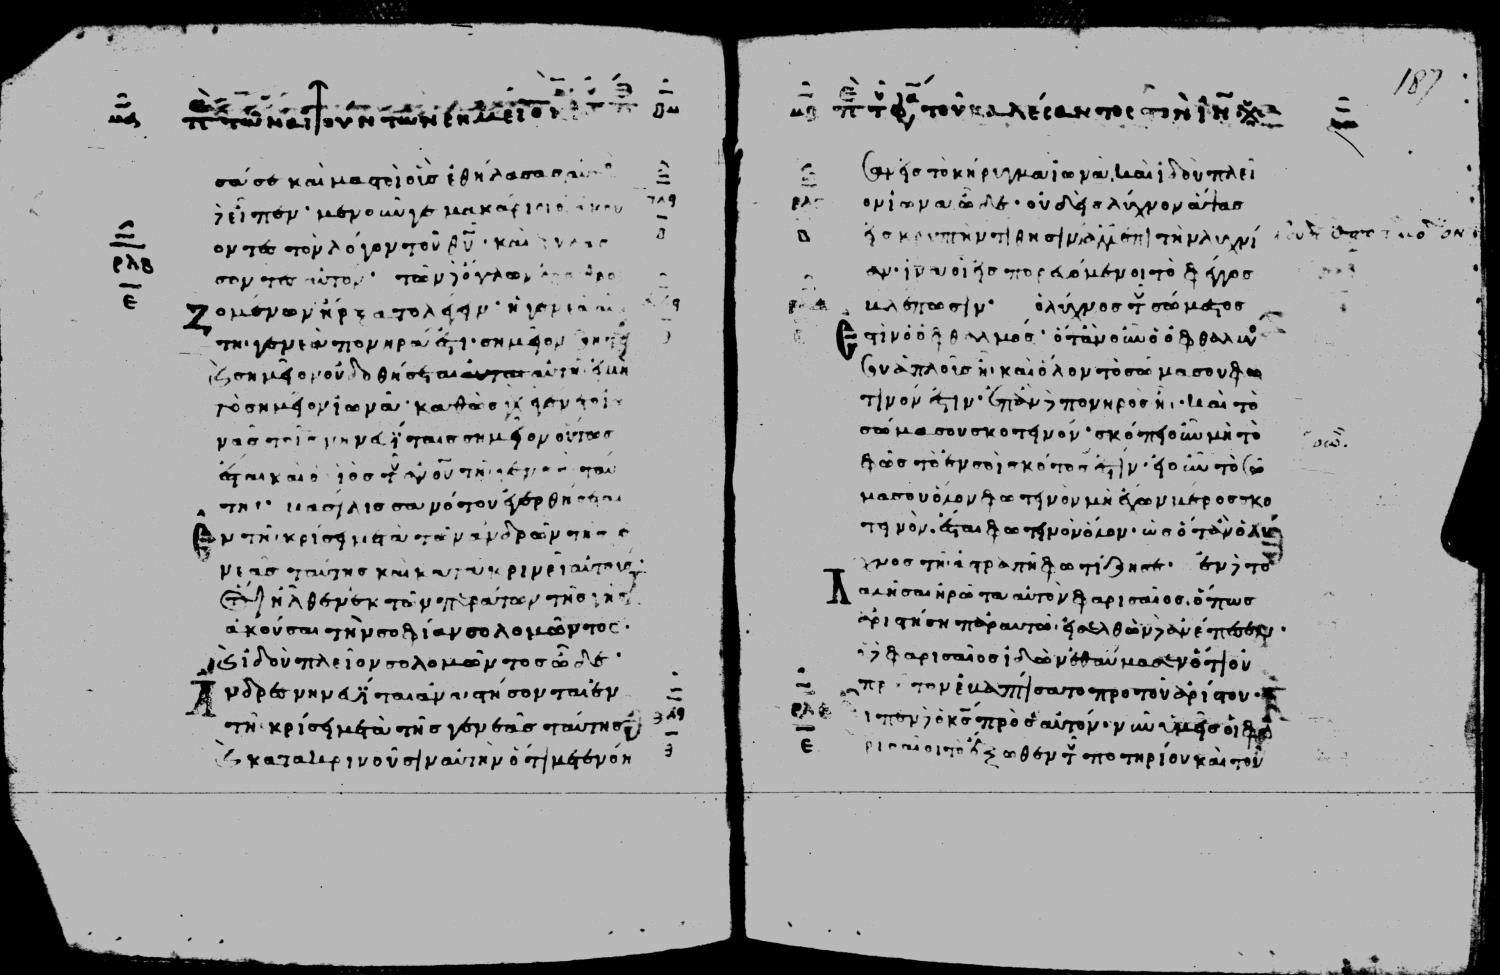 περὶ τῶν αἰτούντων σημεῖον
σά σε καὶ μαστοὶ οἷς ἐθήλασας αὐτὸς
δὲ εἶπεν· μενοῦνγε μακάριοι οἱ ἀκού
οντες τὸν λόγον τοῦ θυ· καὶ φυλάσ
σοντες αὐτόν· τῶν δὲ ὄχλων ἐπαθροι
ζομένων ἤρξατο λέγειν· ἡ γενεὰ αὕ
τη γενεὰ πονηρά ἐστι· σημεῖον
καὶ σημεῖον οὐ δοθήσεται αὐτῇ· εἰ μὴ
τὸ σημεῖον ἰωνᾶ· καθὼς γὰρ ἐγένετο ἰω
νᾶς τοῖς νηνευΐταις σημεῖον οὕτως
ἔσται καὶ ὁ υἱὸς τοῦ ἀνου τῇ γενεᾷ ταύ
τῃ· βασίλισσα νότου ἐγερθήσεται
ἐν τῇ κρίσει μετὰ τῶν ἀνδρῶν τῆς γε
νεᾶς ταύτης καὶ κατακρινεῖ αὐτούς
ὅτι ἦλθεν ἐκ τῶν περάτων τῆς γῆς
ἀκοῦσαι τὴν σοφίαν σολομῶντος·
καὶ ἰδοὺ πλεῖον σολομῶντος ὧδε·
Ἄνδρες νηνευΐται ἀναστήσονται ἐν
τῇ κρίσει μετὰ τῆς γενεᾶς ταύτης
καὶ κατακρινοῦσιν αὐτὴν ὅτι μετενόη
187
περὶ τοῦ φαρισαίου τοῦ καλέσαντος τὸν ιν
σαν εἰς τὸ κήρυγμα ἰωνᾶ, καὶ ἰδοὺ πλεῖ
ον ἰωνᾶ ὧδε· οὐδεὶς λύχνον ἅψας
εἰς κρυπτὴν τίθησιν ἀλλ' ἐπὶ τὴν λυχνί
αν· ἵνα οἱ εἰσπορευόμενοι τὸ φέγγος
βλέπωσιν· ὁ λύχνος τοῦ σώματος
ἐστιν ὁ ὀφθαλμός· ὅταν οὖν ὁ ὀφθαλμός
σου ἁπλοῦς ᾖ· καὶ ὅλον τὸ σῶμα σου φω
τινόν ἐστιν· ἐπὰν δὲ πονηρὸς ᾖ· καὶ τὸ
σῶμα σου σκοτεινόν· σκόπει οὖν μὴ τὸ
φῶς τὸ ἐν σοὶ σκότος ἐστίν· εἰ οὖν τὸ σῶ
μα σου ὅλον φωτεινὸν μὴ ἔχων μέρος σκο
τεινὸν, ἔσται φωτεινὸν ὅλον· ὡς ὅταν ὁ λύ
χνος τῇ ἀστραπῇ φωτίζῃ σε· ἐν δὲ τῷ
λαλῆσαι ἠρώτα αὐτὸν φαρισαῖος, ὅπως
ἀριστήσῃ παρ' αὐτῷ· εἰσελθὼν δὲ ἀνέπεσεν·
ὁ δὲ φαρισαῖος ἰδὼν ἐθαύμασεν ὅτι οὐ
πρῶτον ἐβαπτίσατο πρὸ τοῦ ἀρίστου·
εἶπεν δὲ ὁ κς πρὸς αὐτόν· νῦν ὑμεῖς οἱ φα
ρισαῖοι τὸ ἔξωθεν τοῦ ποτηρίου καὶ τοῦ